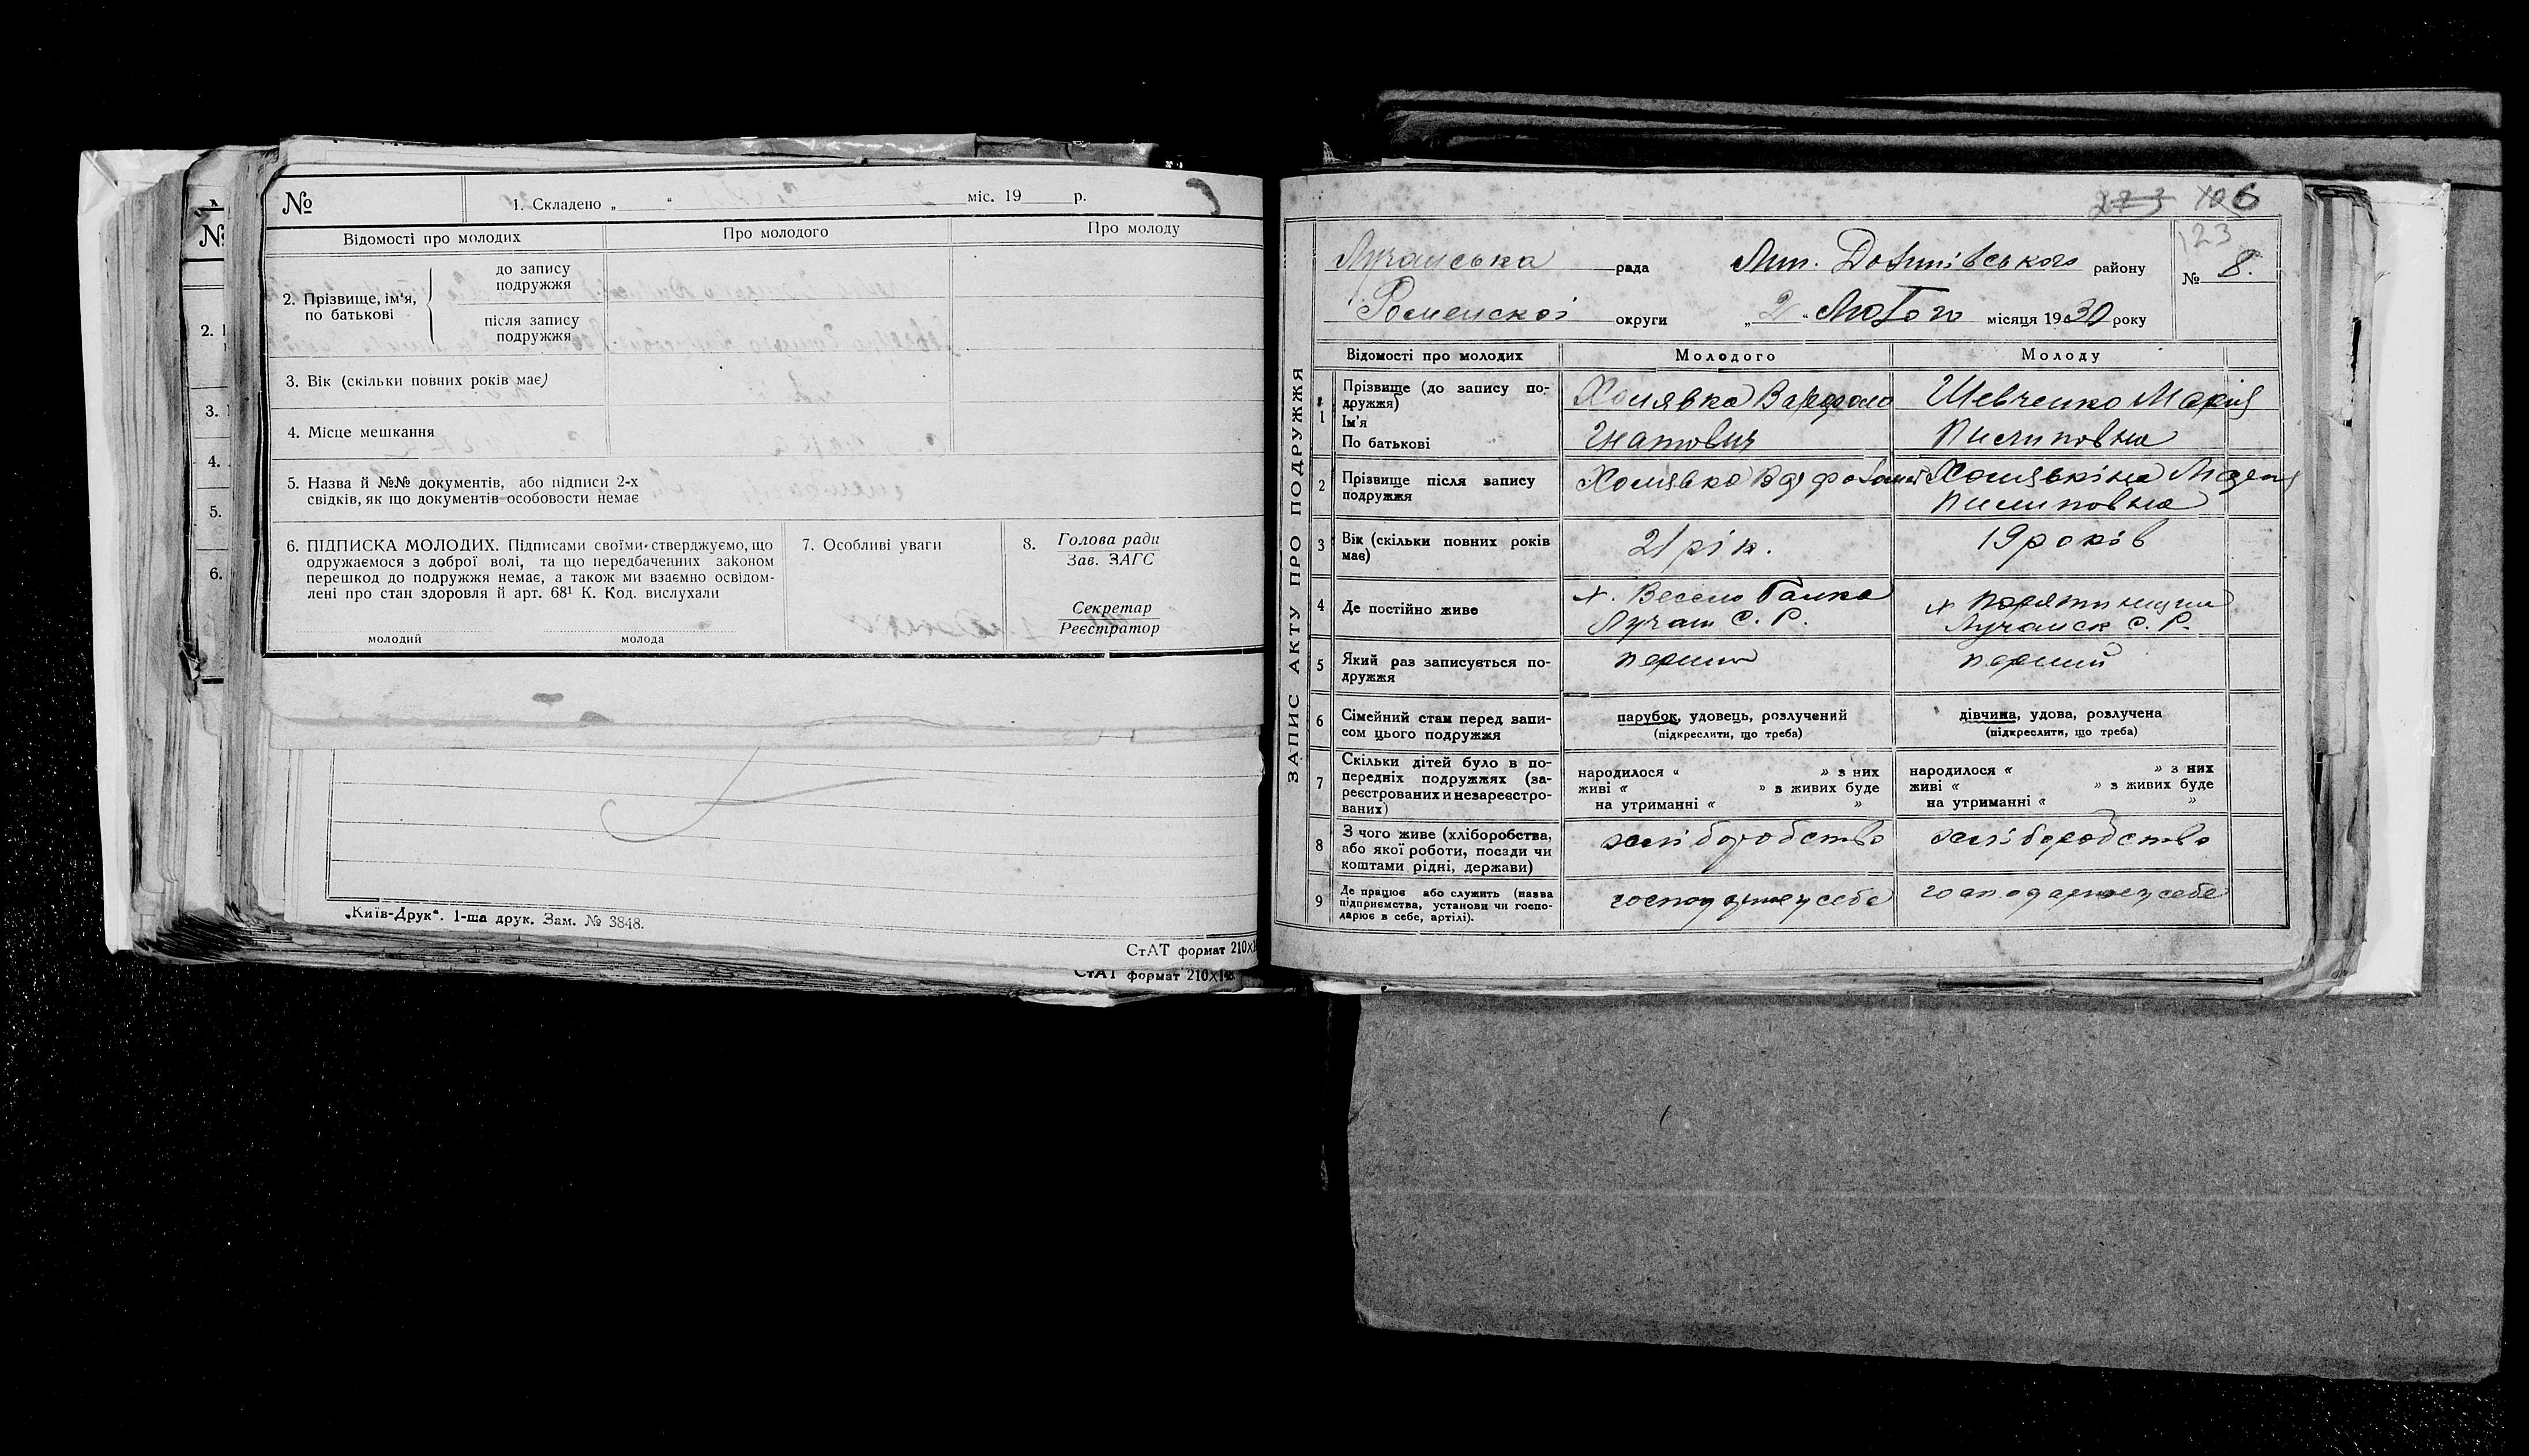 №
1. Складено „ “ міс. 19 р.
Відомості про молодих
Про молодого
Про молоду
2. Прізвище, ім'я, по батькові
до запису подружжя
після запису подружжя
3. Вік (скільки повних років має)
4. Місце мешкання
5. Назва й №№ документів, або підписи 2-х
свідків, як що документів особовости немає
6. ПІДПИСКА МОЛОДИХ. Підписами своїми стверджуємо, що
одружаємося з доброї волі, та що передбаченних законом
перешкод до подружжя немає, а також ми взаємно освідом-
лені про стан здоровля й арт. 68¹ К. Код. вислухали
молодий
молода
7. Особливі уваги
8. Голова ради
Зав. ЗАГС
Секретар
Реєстратор
№
2.
3.
4.
5.
6.
„Київ-Друк“. 1-ша друк. Зам. № 3848.
СтАТ формат 210
СтАТ формат 210
273 106
123
рада
району
№ 8.
округи „2“ Лютого місяця 1930 року
ЗАПИС АКТУ ПРО ПОДРУЖЖЯ
Відомості про молодих
Молодого
Молоду
1
Прізвище (до запису по-
дружжя)
Ім'я
По батькові
Хомявка
Гнатович
Шевченко Марія
Пилиповна
2
Прізвище після запису
подружжя
Хомявка
Пилиповна
3
Вік (скільки повних років
має)
21 рік.
19 років
4
Де постійно живе
х. Весело
С. Р.
х
С. Р.
5
Який раз записується по-
дружжя
перший
перший
6
Сімейний стан перед запи-
сом цього подружжя
парубок, удовець, розлучений
(підкреслити, що треба)
дівчина, удова, розлучена
(підкреслити, що треба)
7
Скільки дітей було в по-
передніх подружжях (за-
реєстрованих и незареєстро-
ваних)
народилося “ ” з них
живі “ ” з живих буде
на утриманні “ ”
народилося “ ” з них
живі “ ” з живих буде
на утриманні “ ”
8
З чого живе (хліборобства,
або якої роботи, посади чи
коштами рідні, держави)
хліборобство
хліборобство
9
Де працює або служить (назва
підприємства, установи чи госпо-
дарює в себе, артілі).
господарює у себе
господарює у себе